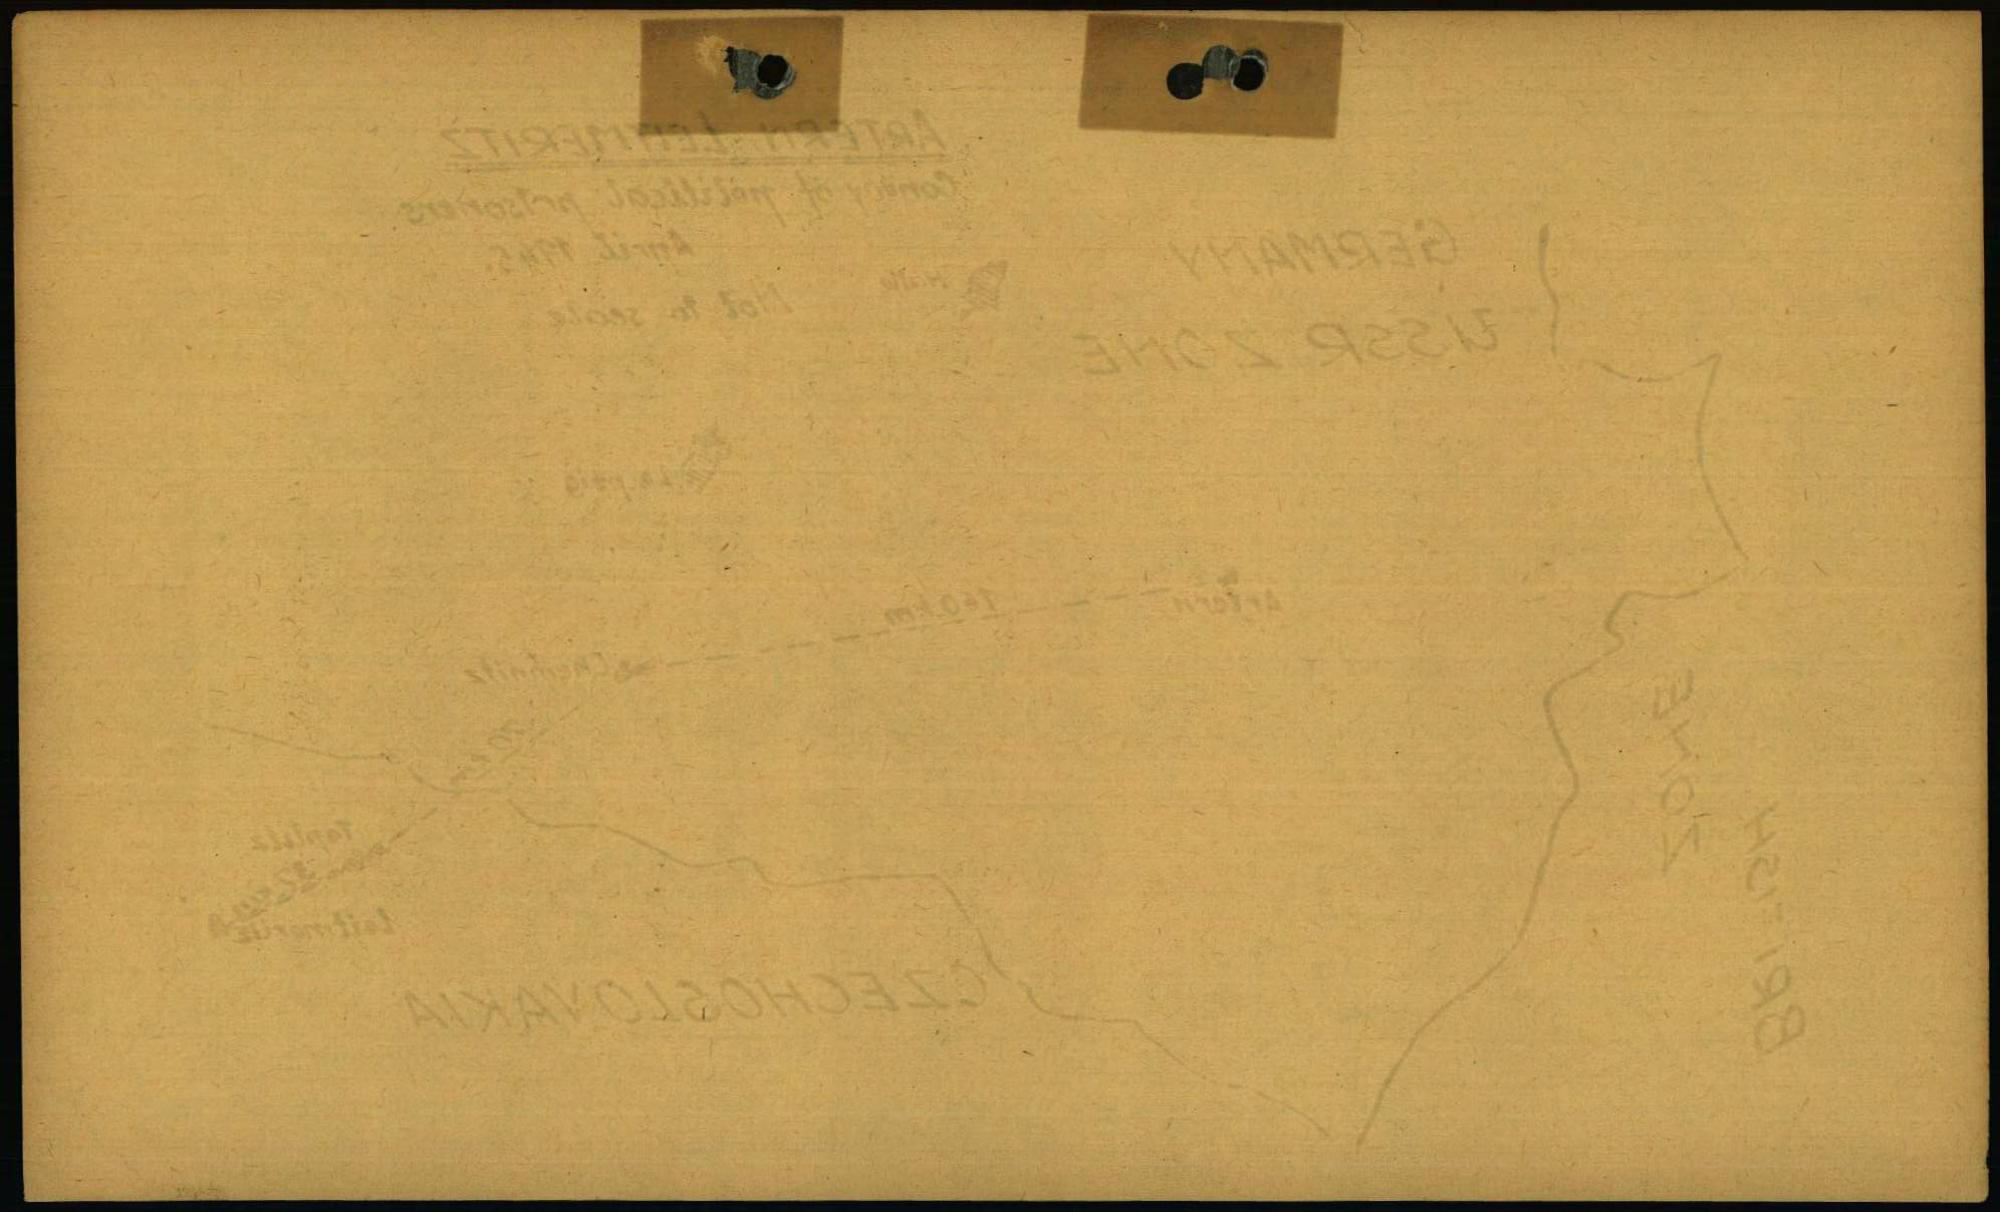 ARTERN - LEITMERITZ
Convoy of political prisoners
April 1945.
Not to scale
Halle
GERMANY
USSR ZONE
Leipzig
Artern
160 km
Chemnitz
70 km
Teplitz
32 km
Leitmeritz
CZECHOSLOVAKIA
ZONE